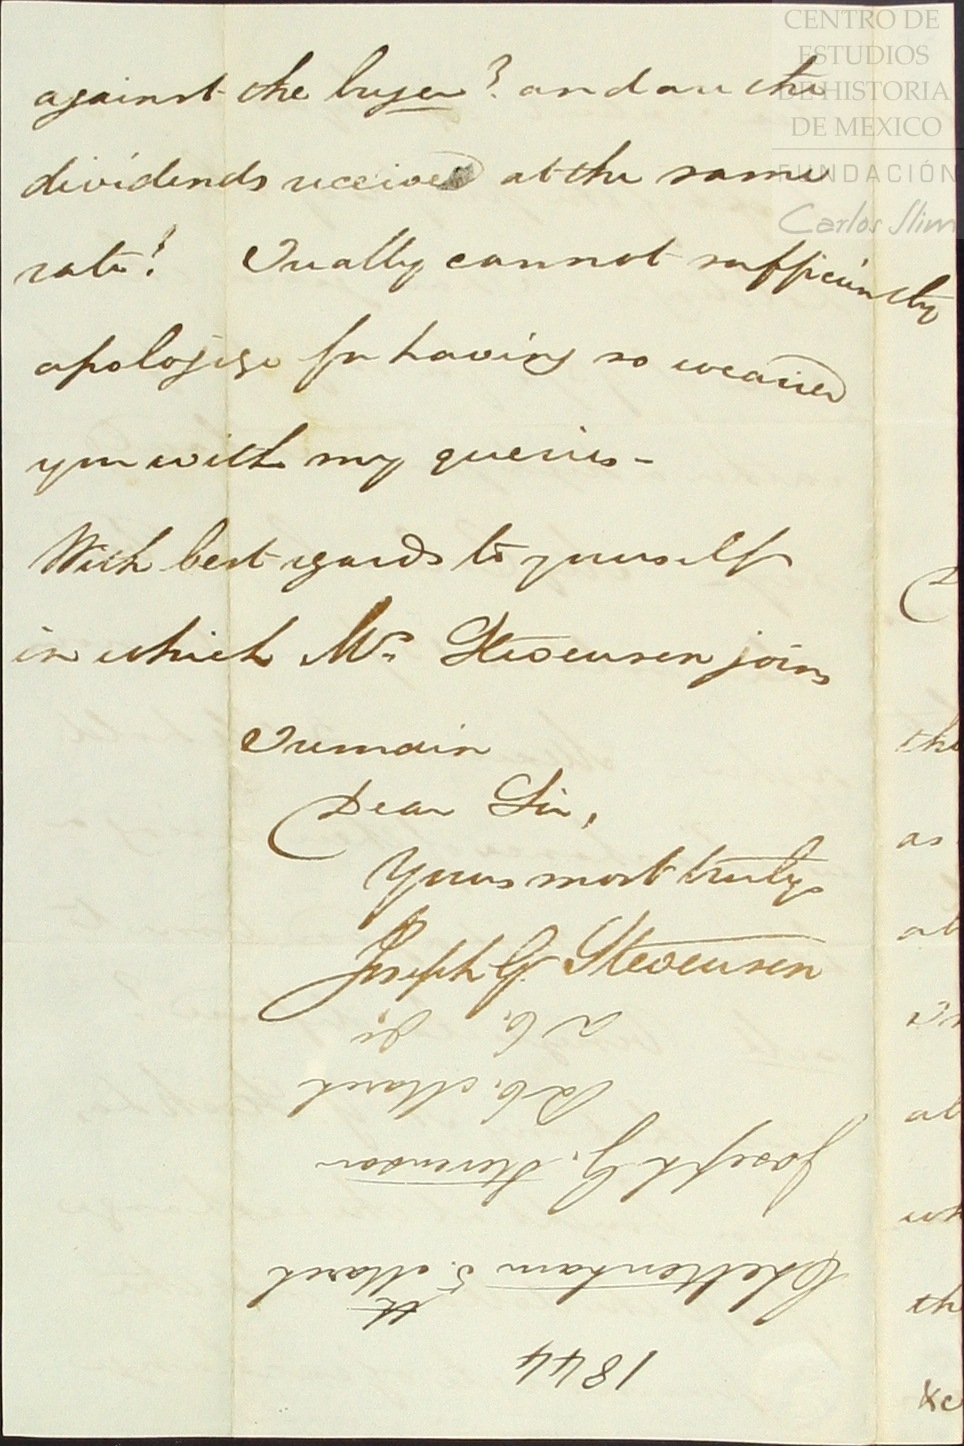 CENTRO DE
ESTUDIOS
DE HISTORIA
DE MEXICO
FUNDACIÓN
Carlos Slim
against the buyer? and are the
dividends received at the same
rate? I really cannot sufficiently
apologize for having so wearied
you with my queries -
With best regards to yourself
in which Mrs Stevenson joins
I remain
Dear Sir,
Yours most truly
Joseph G. Stevenson
1844
Cheltenham 5th March
Joseph G. Stevenson
Rd. 6. March
a 6. do.
the
as
at
at
wh
th
&c